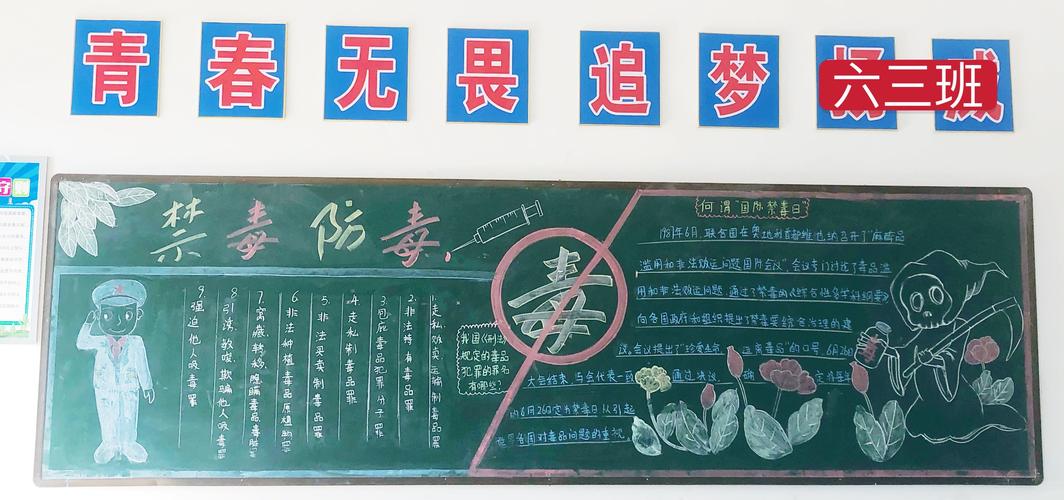 青春无畏追梦
六三班
禁毒防毒
毒
我国《刑法》
规定的毒品
犯罪的罪名
有哪些?
1.走私贩卖运输制毒品罪
2.非法持有毒品罪
3.包庇毒品犯罪分子罪
4.走私制毒品罪
5.非法买卖制毒品罪
6.非法种植毒品原植物罪
7.窝藏、转移、隐瞒毒品毒赃
8.引诱、教唆、欺骗他人吸毒罪
9.强迫他人吸毒罪
何谓"国际禁毒日"
1987年6月,联合国在奥地利首都维也纳召开了"麻醉品
滥用和非法贩运问题国际会议",会议专门讨论了毒品滥
用和非法贩运问题,通过了禁毒的《综合性多学科纲要》
向各国政府和组织提出了禁毒要综合治理的建
议。会议提出了"珍爱生命 毒品"的口号。6月26日
大会结束,与会代表一致 通过决议 定将每年
的6月26日定为禁毒日以引起
世界各国对毒品问题的重视